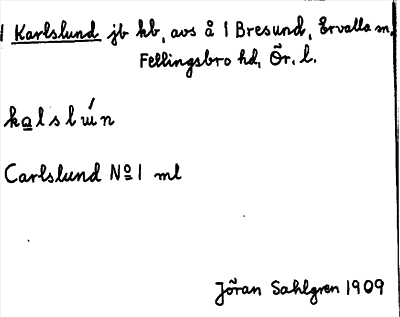 1 Karlslund jb hb, avs å 1 Bresund, Ervalla m,
Fellingsbro hd, Ör. l.
kalslɯ́n
Carlslund No 1 ml
Jöran Sahlgren 1909